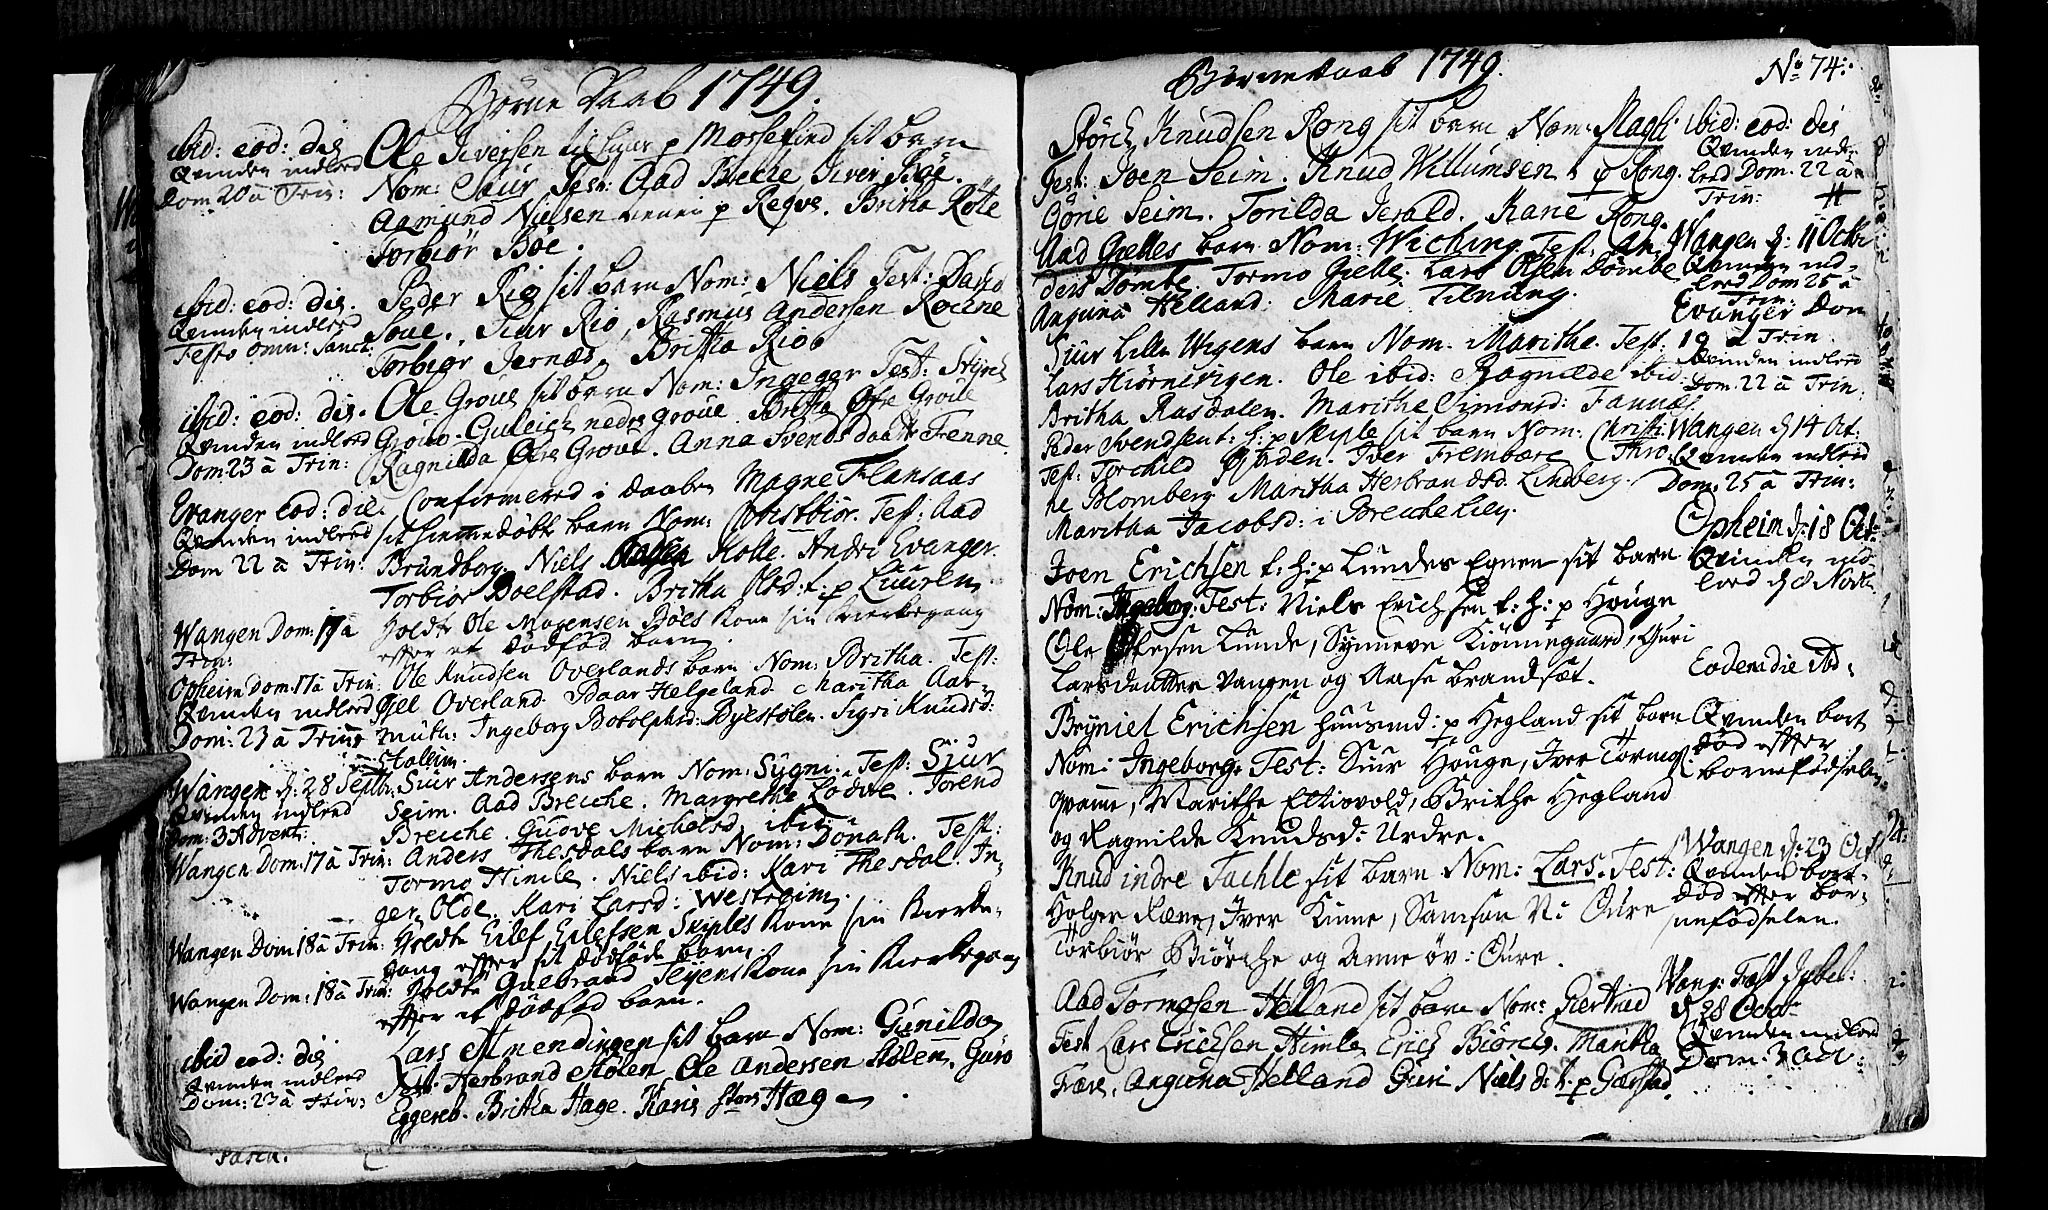 Børne Daab 1749.
ibid: eod: die
Qvinden indleed
Dom 20 â Trin:
Ole Iversen til huus p Mossefind sit barn
Nom: Siur Test: Aad Breche Iver Bøe.
Aamund Nielsen p Reqve. Britha Röte
Torbiör Böe.
ibid: eod: die.
Qvinden indleed
Festo omn: Sanct:
Peder Rio sit barn Nom: Niels Test: David
Soue. Siur Rio, Rasmus Andersen Rochne
Torbiör Jernæs, Britha Rio.
ibid: eod: die.
Qvinden indleed
Dom 23 â Trin:
Ole Groue sit barn Nom: Ingeger Test: Styrch
Groue. Guleich nedre groue. Britha Øfre Groue
Ragnilda Øfre Groue. Anna Svends daatt Frenne.
Evanger eod: die.
Qvinden indleed
Dom 22 â Trin:
Confirmered i daaben Magne Flansaas
sit hiemmedöbt barn Nom: Christbiör. Test: Aad
Brundborg. Niels Kolle. Andri Evanger.
Torbiör Boelstad. Britha Olsd: t: p Liiuren.
Wangen Dom: 17 â
Trin:
Holdt Ole Mogensen Böes Kone sin Kierkegang
efter et dödföd barn.
Opheim Dom 17 â Trin:
Qvinden indleed
Dom: 23 â Trin:
Ole Knudsen Overlands barn Nom: Britha. Test:
Giel Overland. Baar Helgeland. Maritha Aar-
muth: Ingeborg Botolphsd: Byestölen. Sigri Knudsd:
Stalleim.
Wangen d: 28 Septb:
Qvinden indleed
Dom: 3 Advent:
Siur Andersens barn Nom: Sygni. Test: Sjur
Seim. Aad Breiche. Margrethe Lodve. Torend
Breiche. Gudve Michelsd ibid.
Wangen Dom: 17 â Trin:
Anders Thesdals barn Nom: Donath. Test:
Tormo Himle. Niels ibid: Kari Thesdal. In-
ger Olde. Kari Larsd: Westreim.
Wangen Dom 18 â Trin:
Holdte Eilef Eilefsen Skiples Kone sin Kierke-
gang efter sit dödföde barn.
Wangen Dom: 18 â Trin:
Holdte Gulbrand Teyens Kone sin Kierkegang
efter et dödföd barn.
ibid eod: die
Qvinden indleed
Dom: 23 â Trin:
Lars Almendingen sit barn Nom: Gunilda
Test: Herbrand Stölen Ole Andersen Stölen. Guro
Eggereb. Britha Hage. Karis store Hæg
Børnedaab 1749.
No 74:
Störch Knudsen Rong sit barn Nom: Magli
Test: Joen Seim. Knud Willumsen p Rong.
Görie Seim. Torilda Jerald. Kari Rong.
ibid: eod: die
Qvinden ind-
leed Dom. 22 â
Trin:
Aad Gielles barn Nom: Wiching. Test: An-
ders Dömbe. Tormo Gielle. Lars Olsen Dömbe
Anguna Helland: Marie Tilnung.
Wangen d: 11 Octbr
Qvinden ind-
leed Dom 25 â
Trin:
Siur Lille Wigens barn Nom. Marithe. Test.
Lars Hiörnevigen. Ole ibid: Ragnilde ibid:
Britha Rasdalen. Marithe Simensd: Fannæs.
Evanger Dom
19 â Trin.
Qvinden indleed
Dom: 22 â Trin.
Peder Svendsen t: h: p Skiple sit barn Nom: Christi
Test: Torchild Gjorden. Iver Frembære Thro
ne Blomberg. Maritha Herbrandsd. Lindberg.
Maritha Jacobsd: i Breicheliey.
Wangen d 14 Oct:
Qvinden indleed
Dom: 25 â Trin:
Joen Erichsen t: h: p Lundes Egnen sit barn
Nom: Ingeborg: Test: Niels Erichsen t: h: p Houge
Ole Lunde, Synneve Kiönnegaard, Guri
Larsdaatter Vangen og Aase Brandsæt.
Opheim d: 18 Oct:
Qvinden ind-
leed d 8 Novb:
Bryniel Erichsen huusmd: p Hegland sit barn
Nom: Ingeborg. Test: Siur Houge, Iver Tormo
qvamme, Marithe Eltiovold, Brithe Hegland
og Ragnilde Knudsd: Urdre.
Eodem die ibd:
Qvinden bort
död efter
barnefödselen.
Knud indre Tachle sit barn Nom: Lars. Test:
Holger Ræne, Iver Kinne, Samson N: Oure
Torbiör Biörche og Anne öv: Oure.
Wangen d: 23 Oct
Qvinden bort-
död efter bar-
nefödselen.
Aad Tormosen Helland sit barn Nom: Giertrud
Test Lars Erichsen Himle, Erich Biörche. Maritha
Fære. Anguna Helland Guri Nielsd: t: p Gierstad.
Wang: Fest Jubil:
d 28 Octbr
Qvinden indleed
Dom: 3 Adv: